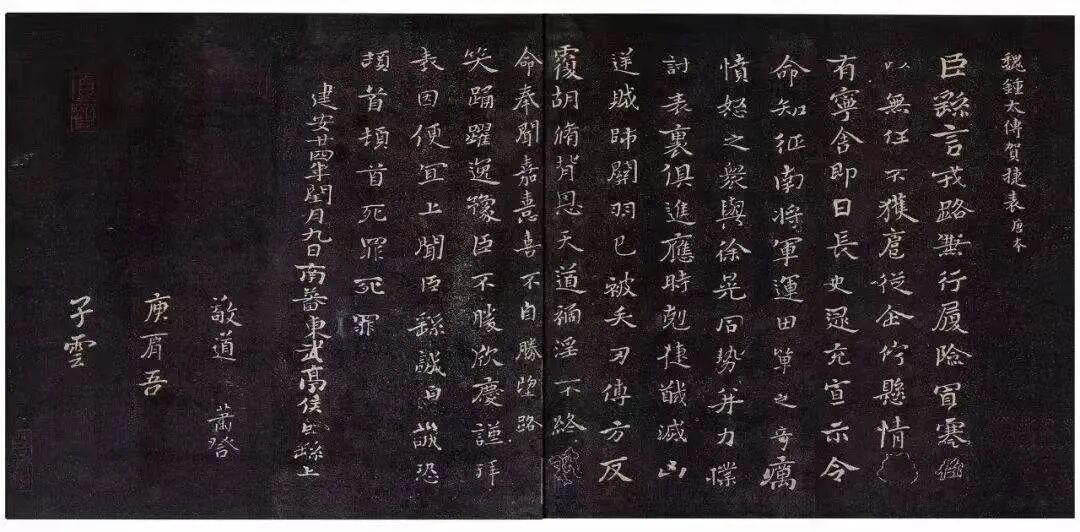 魏鍾太傅賀捷表 唐本
臣繇言戎路兼行履險冒寒臣
以無任不獲扈從企佇懸情
有寧舍即日長史逯充宣示令
命知征南將軍運田單之奇厲
憤怒之眾與徐晃同勢并力撲
討表裏俱進應時剋捷馘滅凶
逆賊帥關羽已被矢刃傅方反
覆胡脩背恩天道禍淫不終
命奉聞嘉憙喜不自勝望路
笑踊躍逸豫臣不勝欣慶謹拜
表因便宜上聞臣繇誠惶誠恐
頓首頓首死罪死罪
建安廿四年閏月九日南蕃東武亭侯臣繇上
敬道 蕭登
庾肩吾
子雲